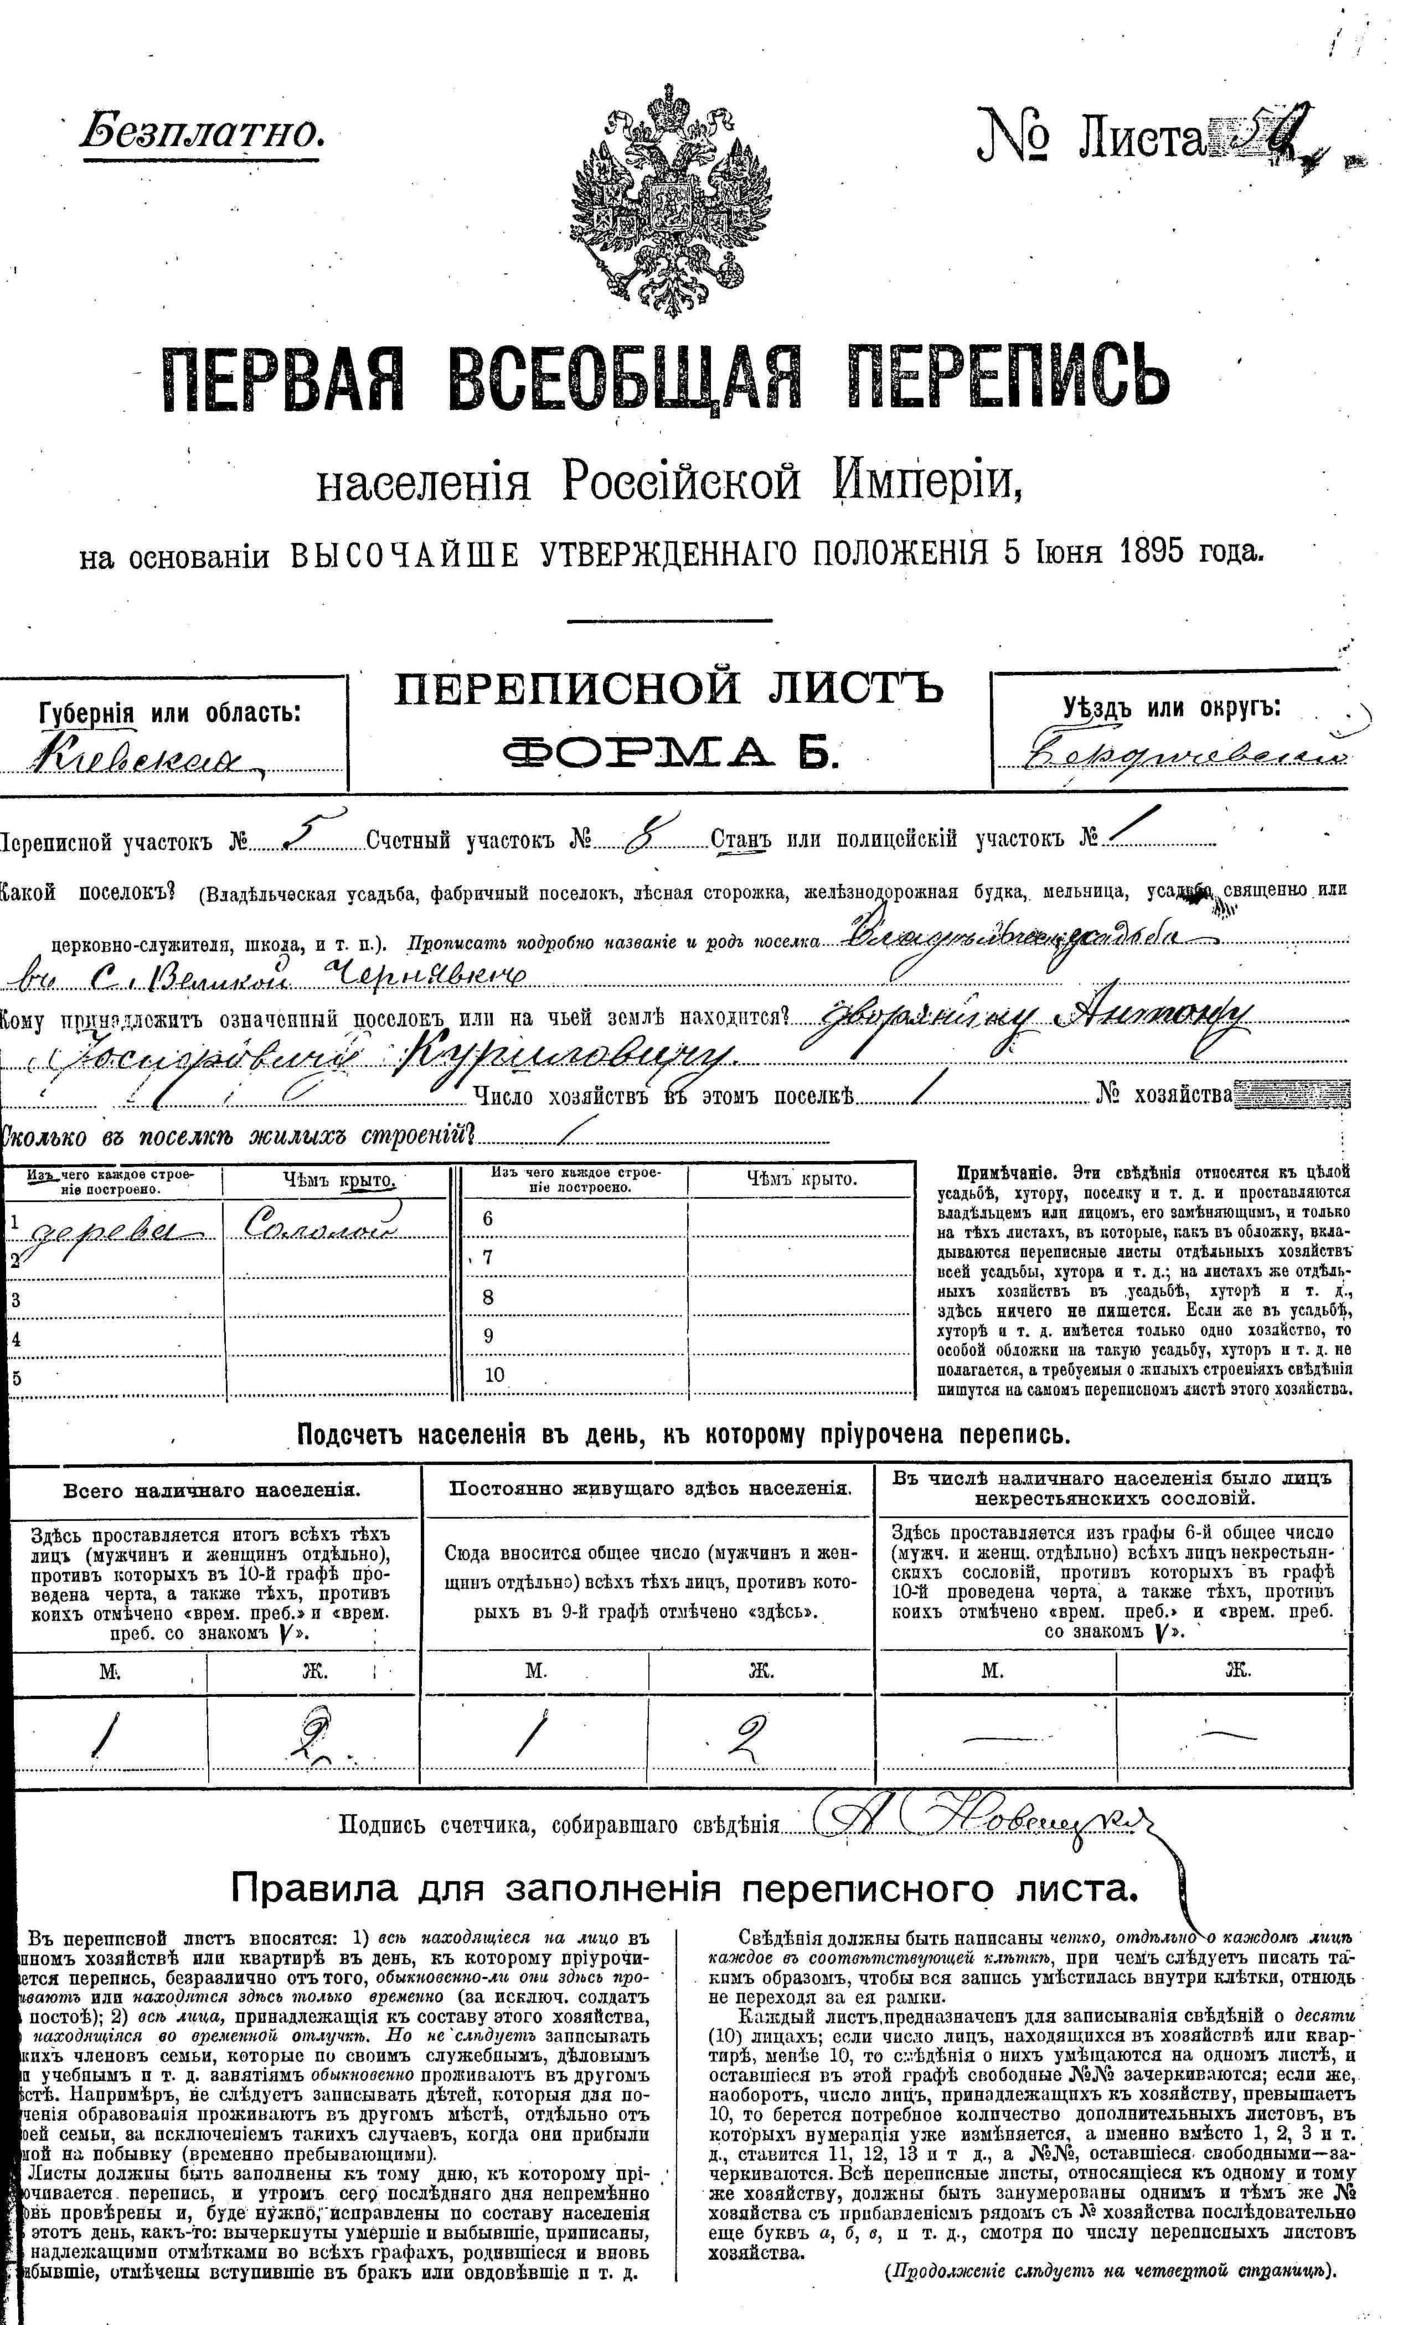 Безплатно.
№ Листа
ПЕРВАЯ ВСЕОБЩАЯ ПЕРЕПИСЬ
населенія Россійской Имперіи,
на основаніи ВЫСОЧАЙШЕ УТВЕРЖДЕННАГО ПОЛОЖЕНІЯ 5 Іюня 1895 года.
ПЕРЕПИСНОЙ ЛИСТЪ
ФОРМА Б.
Губернія или область:
Кіевская
Уѣздъ или округъ:
Бердичевскій
Переписной участокъ № 5 Счетный участокъ № 8 Станъ или полицейскій участокъ № 1
Какой поселокъ? (Владѣльческая усадьба, фабричный поселокъ, лѣсная сторожка, желѣзнодорожная будка, мельница, усадьба священно или
церковно-служителя, школа, и т. п.). Прописать подробно названіе и родъ поселка Владѣльческая усадьба
въ с. Великой Чернявке
Кому принадлежитъ означенный поселокъ или на чьей землѣ находится? дворянину Антону
Іосифовичу Куриловичу.
Число хозяйствъ въ этомъ поселкѣ 1 № хозяйства
Сколько въ поселкѣ жилыхъ строеній? 1
Изъ чего каждое строе-
ніе построено.
Чѣмъ крыто.
Изъ чего каждое строе-
ніе построено.
Чѣмъ крыто.
1 дерева Соломой 6
2 7
3 8
4 9
5 10
Примѣчаніе. Эти свѣдѣнія относятся къ цѣлой
усадьбѣ, хутору, поселку и т. д. и проставляются
владѣльцемъ или лицомъ, его замѣняющимъ, и только
на тѣхъ листахъ, въ которые, какъ въ обложку, вкла-
дываются переписные листы отдѣльныхъ хозяйствъ
всей усадьбы, хутора и т. д.; на листахъ же отдѣль-
ныхъ хозяйствъ въ усадьбѣ, хуторѣ и т. д.,
здѣсь ничего не пишется. Если же въ усадьбѣ,
хуторѣ и т. д. имѣется только одно хозяйство, то
особой обложки на такую усадьбу, хуторъ и т. д. не
полагается, а требуемыя о жилыхъ строеніяхъ свѣдѣнія
пишутся на самомъ переписномъ листѣ этого хозяйства.
Подсчетъ населенія въ день, къ которому пріурочена перепись.
Всего наличнаго населенія.
Здѣсь проставляется итогъ всѣхъ тѣхъ
лицъ (мужчинъ и женщинъ отдѣльно),
противъ которыхъ въ 10-й графѣ про-
ведена черта, а также тѣхъ, противъ
коихъ отмѣчено «врем. преб.» и «врем.
преб. со знакомъ V».
Постоянно живущаго здѣсь населенія.
Сюда вносится общее число (мужчинъ и жен-
щинъ отдѣльно) всѣхъ тѣхъ лицъ, противъ кото-
рыхъ въ 9-й графѣ отмѣчено «здѣсь».
Въ числѣ наличнаго населенія было лицъ
некрестьянскихъ сословій.
Здѣсь проставляется изъ графы 6-й общее число
(мужч. и женщ. отдѣльно) всѣхъ лицъ некрестьян-
скихъ сословій, противъ которыхъ въ графѣ
10-й проведена черта, а также тѣхъ, противъ
коихъ отмѣчено «врем. преб.» и «врем. преб.
со знакомъ V».
М. Ж. М. Ж. М. Ж.
1 2 1 2 — —
Подпись счетчика, собиравшаго свѣдѣнія А Новицкій
Правила для заполненія переписного листа.
Въ переписной листъ вносятся: 1) всѣ находящіеся на лицо въ
нномъ хозяйствѣ или квартирѣ въ день, къ которому пріурочи-
ется перепись, безразлично отъ того, обыкновенно-ли они здѣсь про-
ивають или находятся здѣсь только временно (за исключ. солдатъ
постоѣ); 2) всѣ лица, принадлежащія къ составу этого хозяйства,
находящіяся во временной отлучкѣ. Но не слѣдуетъ записывать
кихъ членовъ семьи, которые по своимъ служебнымъ, дѣловымъ
и учебнымъ и т. д. занятіямъ обыкновенно проживаютъ въ другомъ
стѣ. Напримѣръ, не слѣдуетъ записывать дѣтей, которыя для по-
ченія образованія проживаютъ въ другомъ мѣстѣ, отдѣльно отъ
оей семьи, за исключеніемъ такихъ случаевъ, когда они прибыли
мой на побывку (временно пребывающими).
Листы должны быть заполнены къ тому дню, къ которому прі-
очивается перепись, и утромъ сего послѣдняго дня непремѣнно
овь провѣрены и, буде нужно, исправлены по составу населенія
этотъ день, какъ-то: вычеркнуты умершіе и выбывшіе, приписаны,
надлежащими отмѣтками во всѣхъ графахъ, родившіеся и вновь
ибывшіе, отмѣчены вступившіе въ бракъ или овдовѣвшіе и т. д.
Свѣдѣнія должны быть написаны четко, отдѣльно о каждомъ лицѣ
каждое въ соотвѣтствующей клѣткѣ, при чемъ слѣдуетъ писать та-
кимъ образомъ, чтобы вся запись умѣстилась внутри клѣтки, отнюдь
не переходя за ея рамки.
Каждый листъ предназначенъ для записыванія свѣдѣній о десяти
(10) лицахъ; если число лицъ, находящихся въ хозяйствѣ или квар-
тирѣ, менѣе 10, то свѣдѣнія о нихъ умѣщаются на одномъ листѣ, и
оставшіеся въ этой графѣ свободные №№ зачеркиваются; если же,
наоборотъ, число лицъ, принадлежащихъ къ хозяйству, превышаетъ
10, то берется потребное количество дополнительныхъ листовъ, въ
которыхъ нумерація уже измѣняется, а именно вмѣсто 1, 2, 3 и т.
д., ставится 11, 12, 13 и т д., а №№, оставшіеся свободными—за-
черкиваются. Всѣ переписные листы, относящіеся къ одному и тому
же хозяйству, должны быть занумерованы однимъ и тѣмъ же №
хозяйства съ прибавленіемъ рядомъ съ № хозяйства послѣдовательно
еще буквъ а, б, в, и т. д., смотря по числу переписныхъ листовъ
хозяйства.
(Продолженіе слѣдуетъ на четвертой страницѣ).